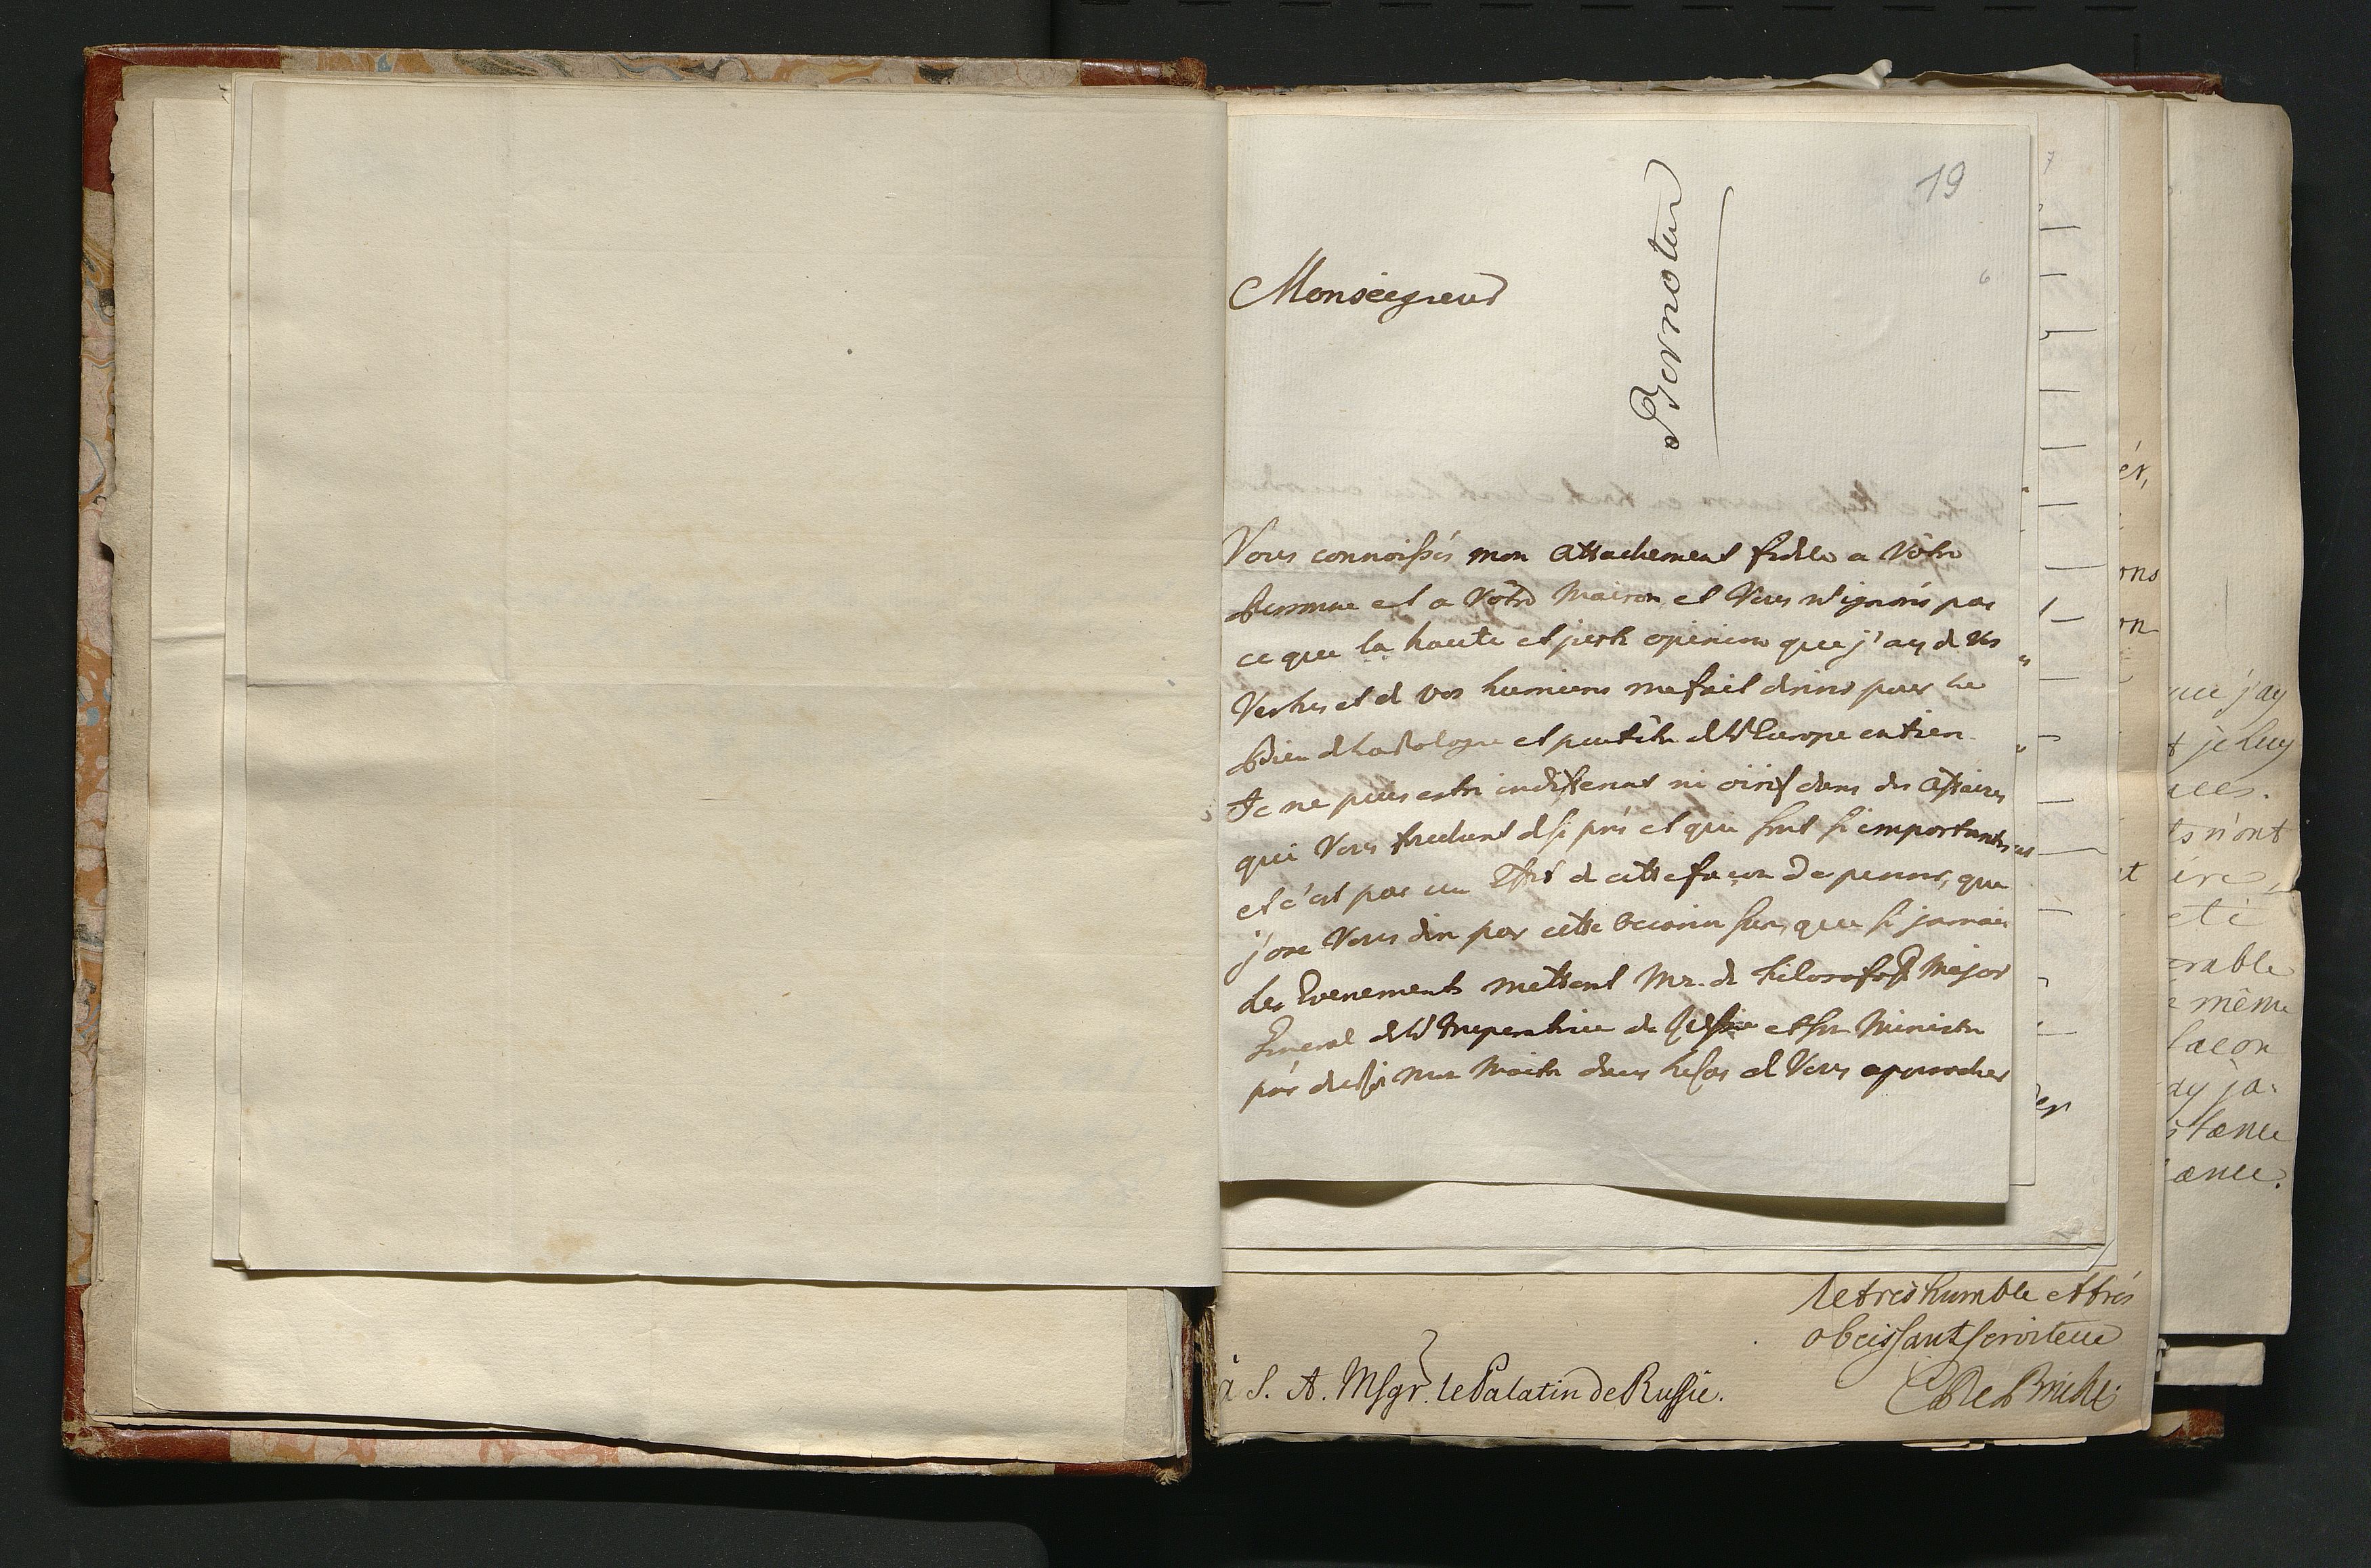 19
Bernotau
6
Monseigneur
Vous connoissés mon attachement fidele a Vôtre
Personne et a Vôtre Maison et Vous n'ignorés pas
ce que la haute et juste opinion que j'ay de Vos
Vertus et de vos lumieres me fait desirer pour le
Bien de la Pologne et peutêtre de l'Europe entiere
Je ne puis estre indifferent ni oisif dans des affaires
qui Vous touchent de si prés et qui sont si importantes
et c'est par un Effet de cette façon de penser, que
j'ose Vous dire par cette occasion sure, que si jamais
les Evenements mettent Mr. de Filosofof Major
General de l'Imperatrice de Russie et son Ministre
prés du Roy mon Maitre dans le cas de Vous approcher
le très humble et trés
obeissant serviteur
à S. A. Msgr. le Palatin de Russie.
ér,
ons
on
uce j'ay
t je luy
ts n'ont
ire,
eté
erable
e même
ay ja-